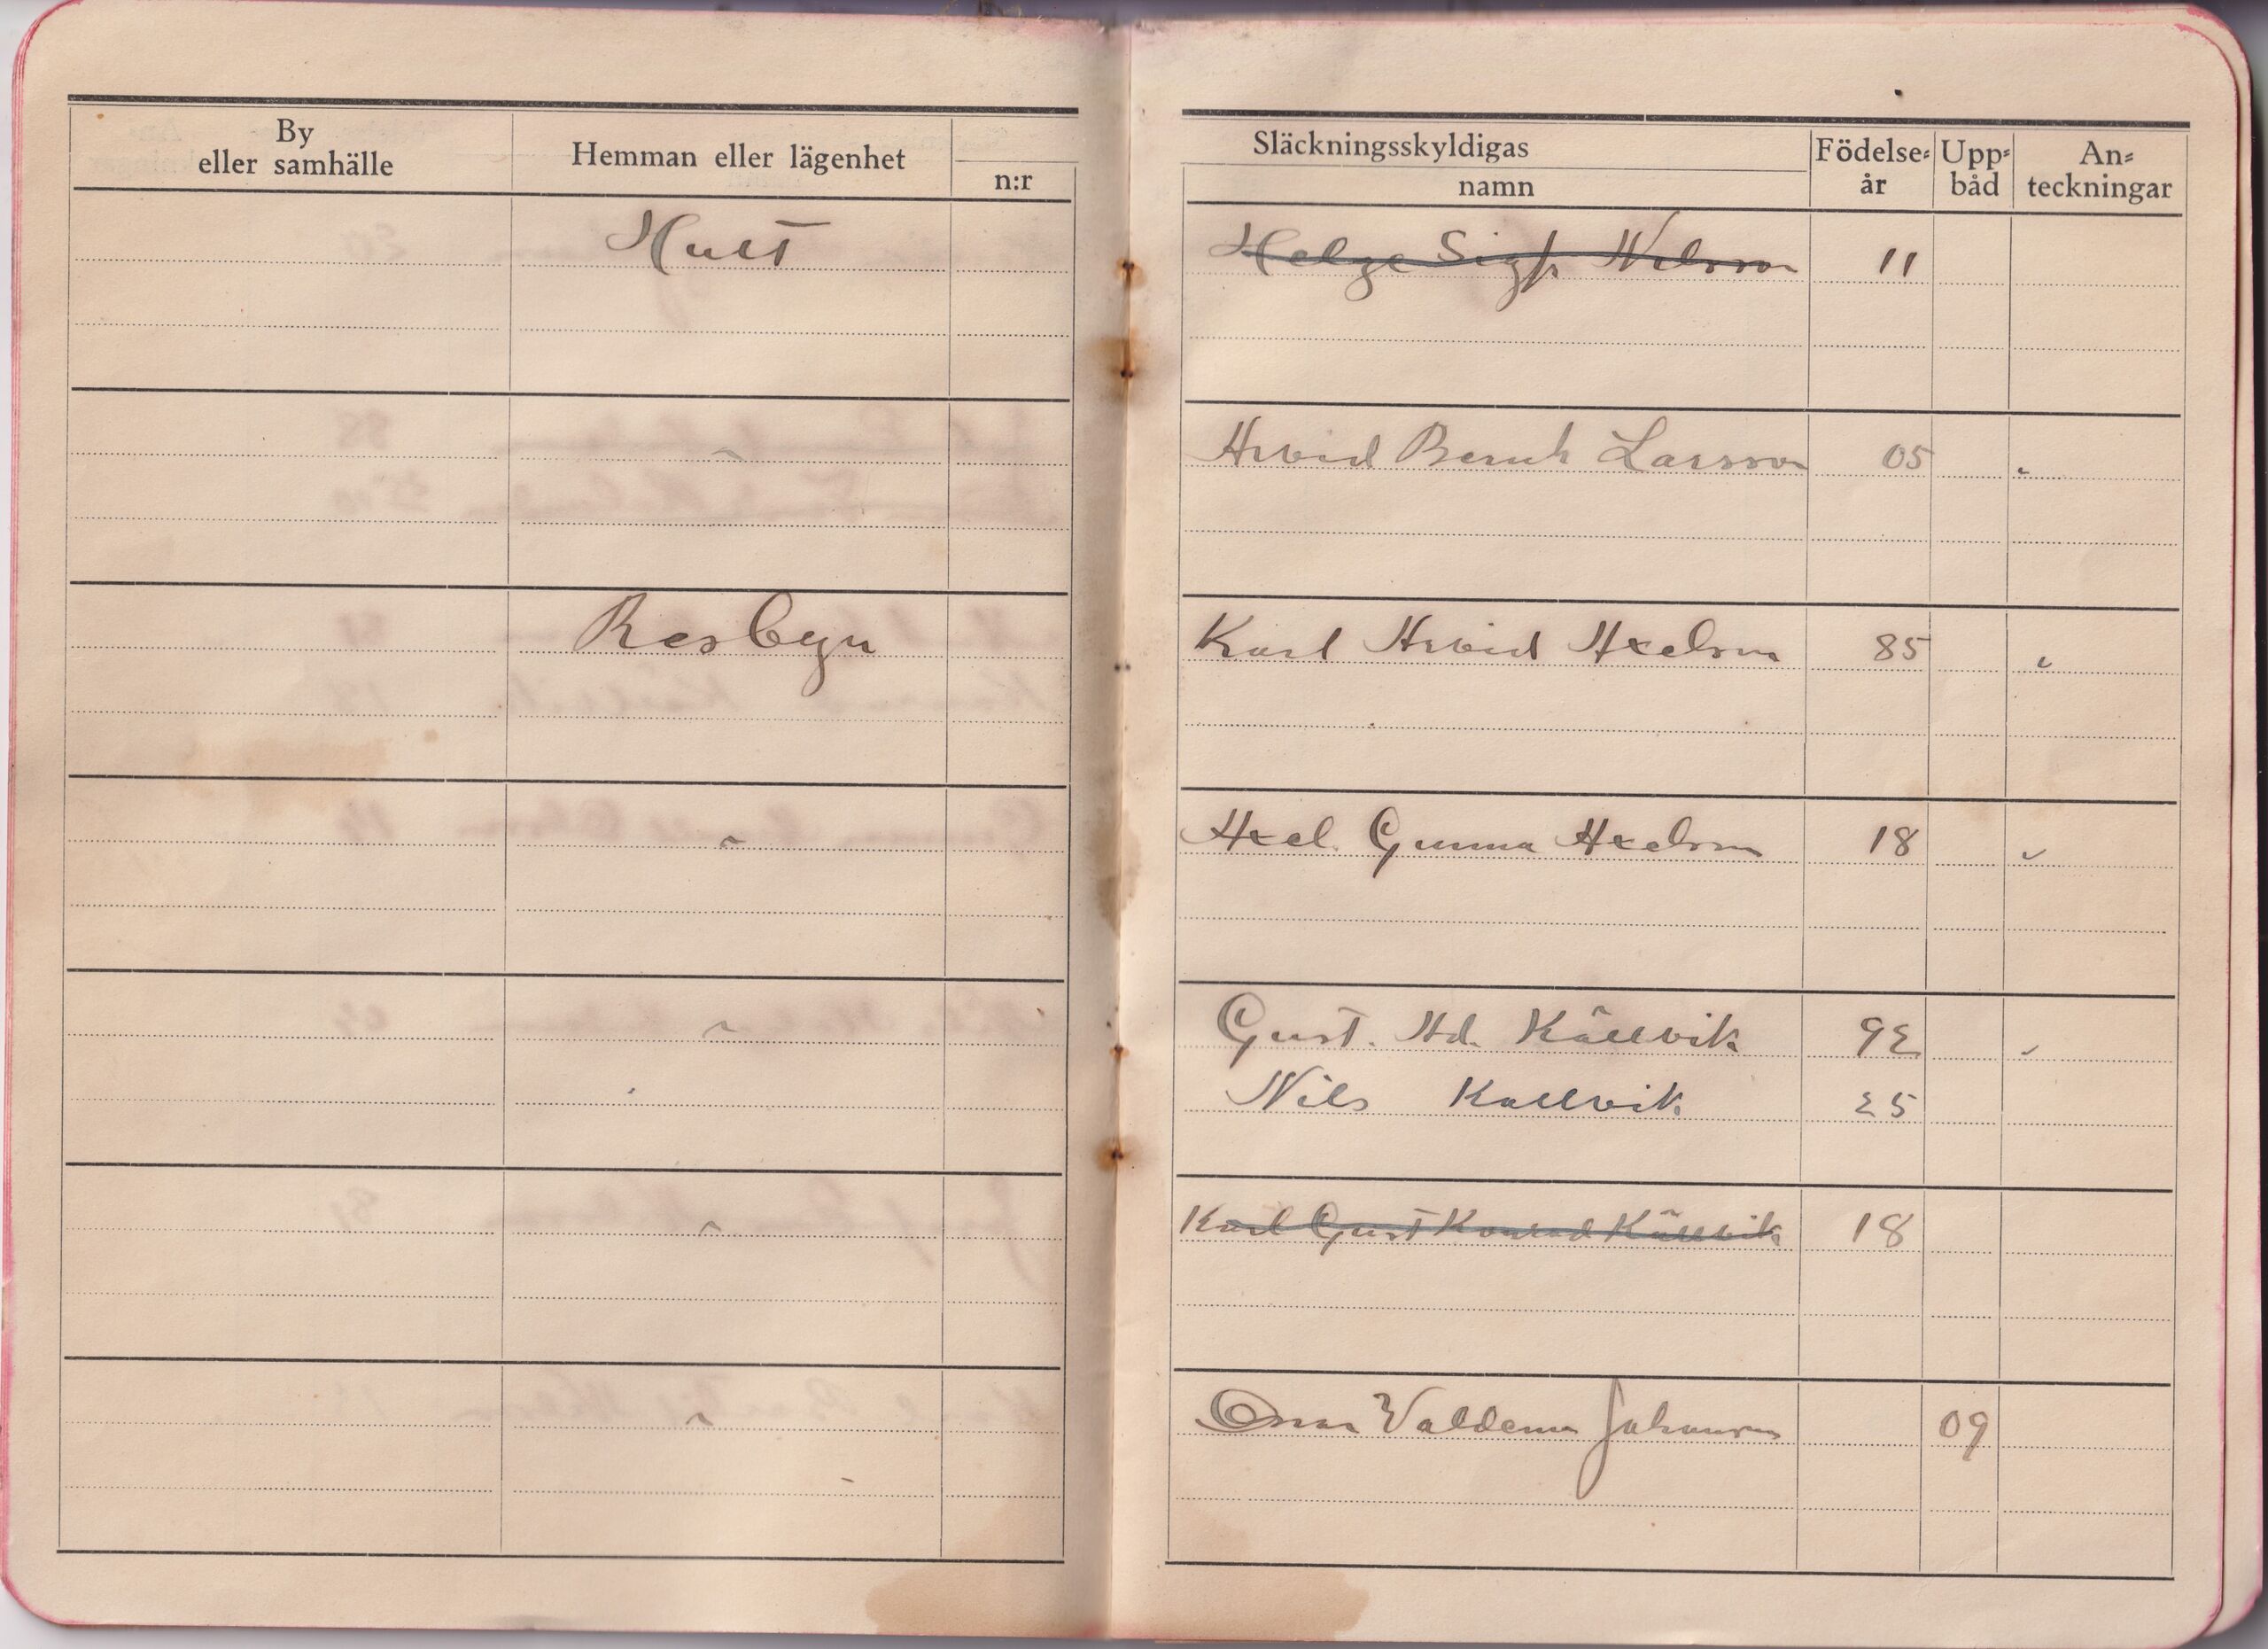 By
eller samhälle
Hemman eller lägenhet
n:r
Släckningsskyldigas
namn
Födelse-
år
Upp-
båd
An-
teckningar
Hult Helge Sigfr Nilsson 11
" Arvid Bernh Larsson 05 "
Resbyn Karl Arvid Axelsson 85 "
" Axel Gunna Axelsson 18 "
" Gust. Ad. Källvik 92 "
Nils Kallvik 25
" Karl Gust Konrad Källvik 18
" Valdemar Johansson 09